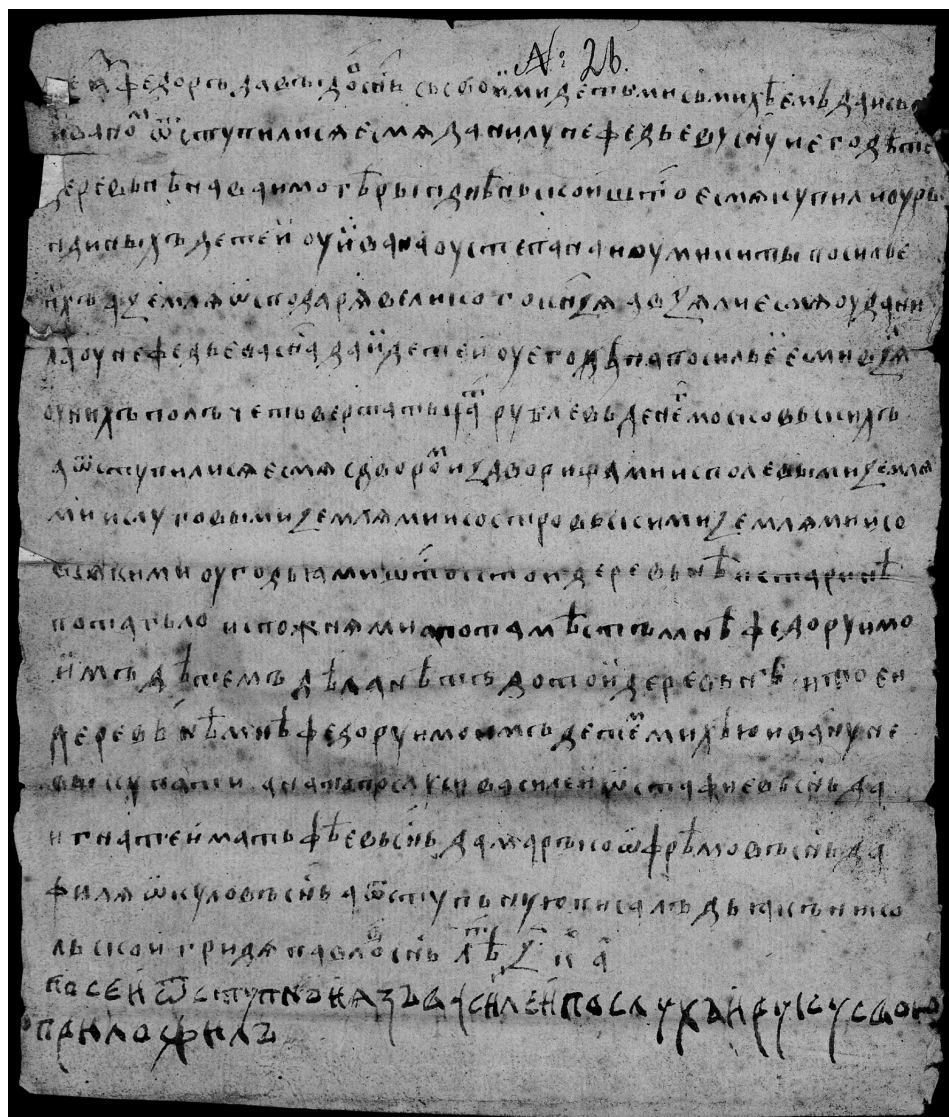 № 26.
Се ꙗ федоръ давыдоⷡ снъ съ своими детьми съ михѣемъ да исъ
иваноⷨ ѿступилися есмя данилу нефедьеву сну и его дѣте
деревьнѣ на ваимоге рьпднѣньской што есмя купили оу рь
ндиныхъ детей оу ивана оу степана и оу микиты посилье
ихъ а ꙁемля осподаря великого кнꙁя а вꙁяли есмя оу дани
ла оу нефедьева сна да и детей оу его на посилье есми вꙁя
оу нихъ полъ четьверътатьцаⷮ рублевъ денеⷢ московьскихъ
а ѿступилися есмя с двороⷨ и ꙁ дворищами и с полевыми ꙁемля
ми и с луговыми ꙁемлями и с островьскими ꙁемлями и со
всякими оугодьями што к той деревьнѣ и старинѣ
потягьло и с пожнями а потамѣстъ мнѣ федору и мо
имъ дѣтемъ дѣла нѣтъ до той деревьнѣ и тоеи
деревьнѣ мнѣ федору и моимъ детеⷨ михѣю ивану не
выкупати а на то послуси василей ѿстафиевъ снъ да
игнатей матьфѣевъ снъ да маръко офрѣмовъ снъ да
филя окуловъ снъ а ѿступьную писалъ дьякъ никo
льской гридя павлоⷡ снъ лѣⷮ ꙁ н а
По сей ѿступной азъ василей послухъ и руку свою
приложилъ